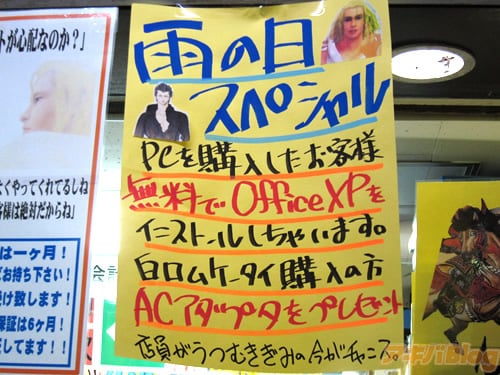 トが心配なのか？」
なくやってくれてるしね
客様は絶対だからね」
は一ヶ月！
お持ち下さい！
け致します！
保証は6ヶ月！
てます！！
雨の日
スペシャル
PCを購入したお客様
無料でOfficeXPを
インストールしちゃいます。
白ロムケータイ購入の方
ACアダプタをプレゼント
店員がうつむきぎみの今がチャンス。
アキバBlog